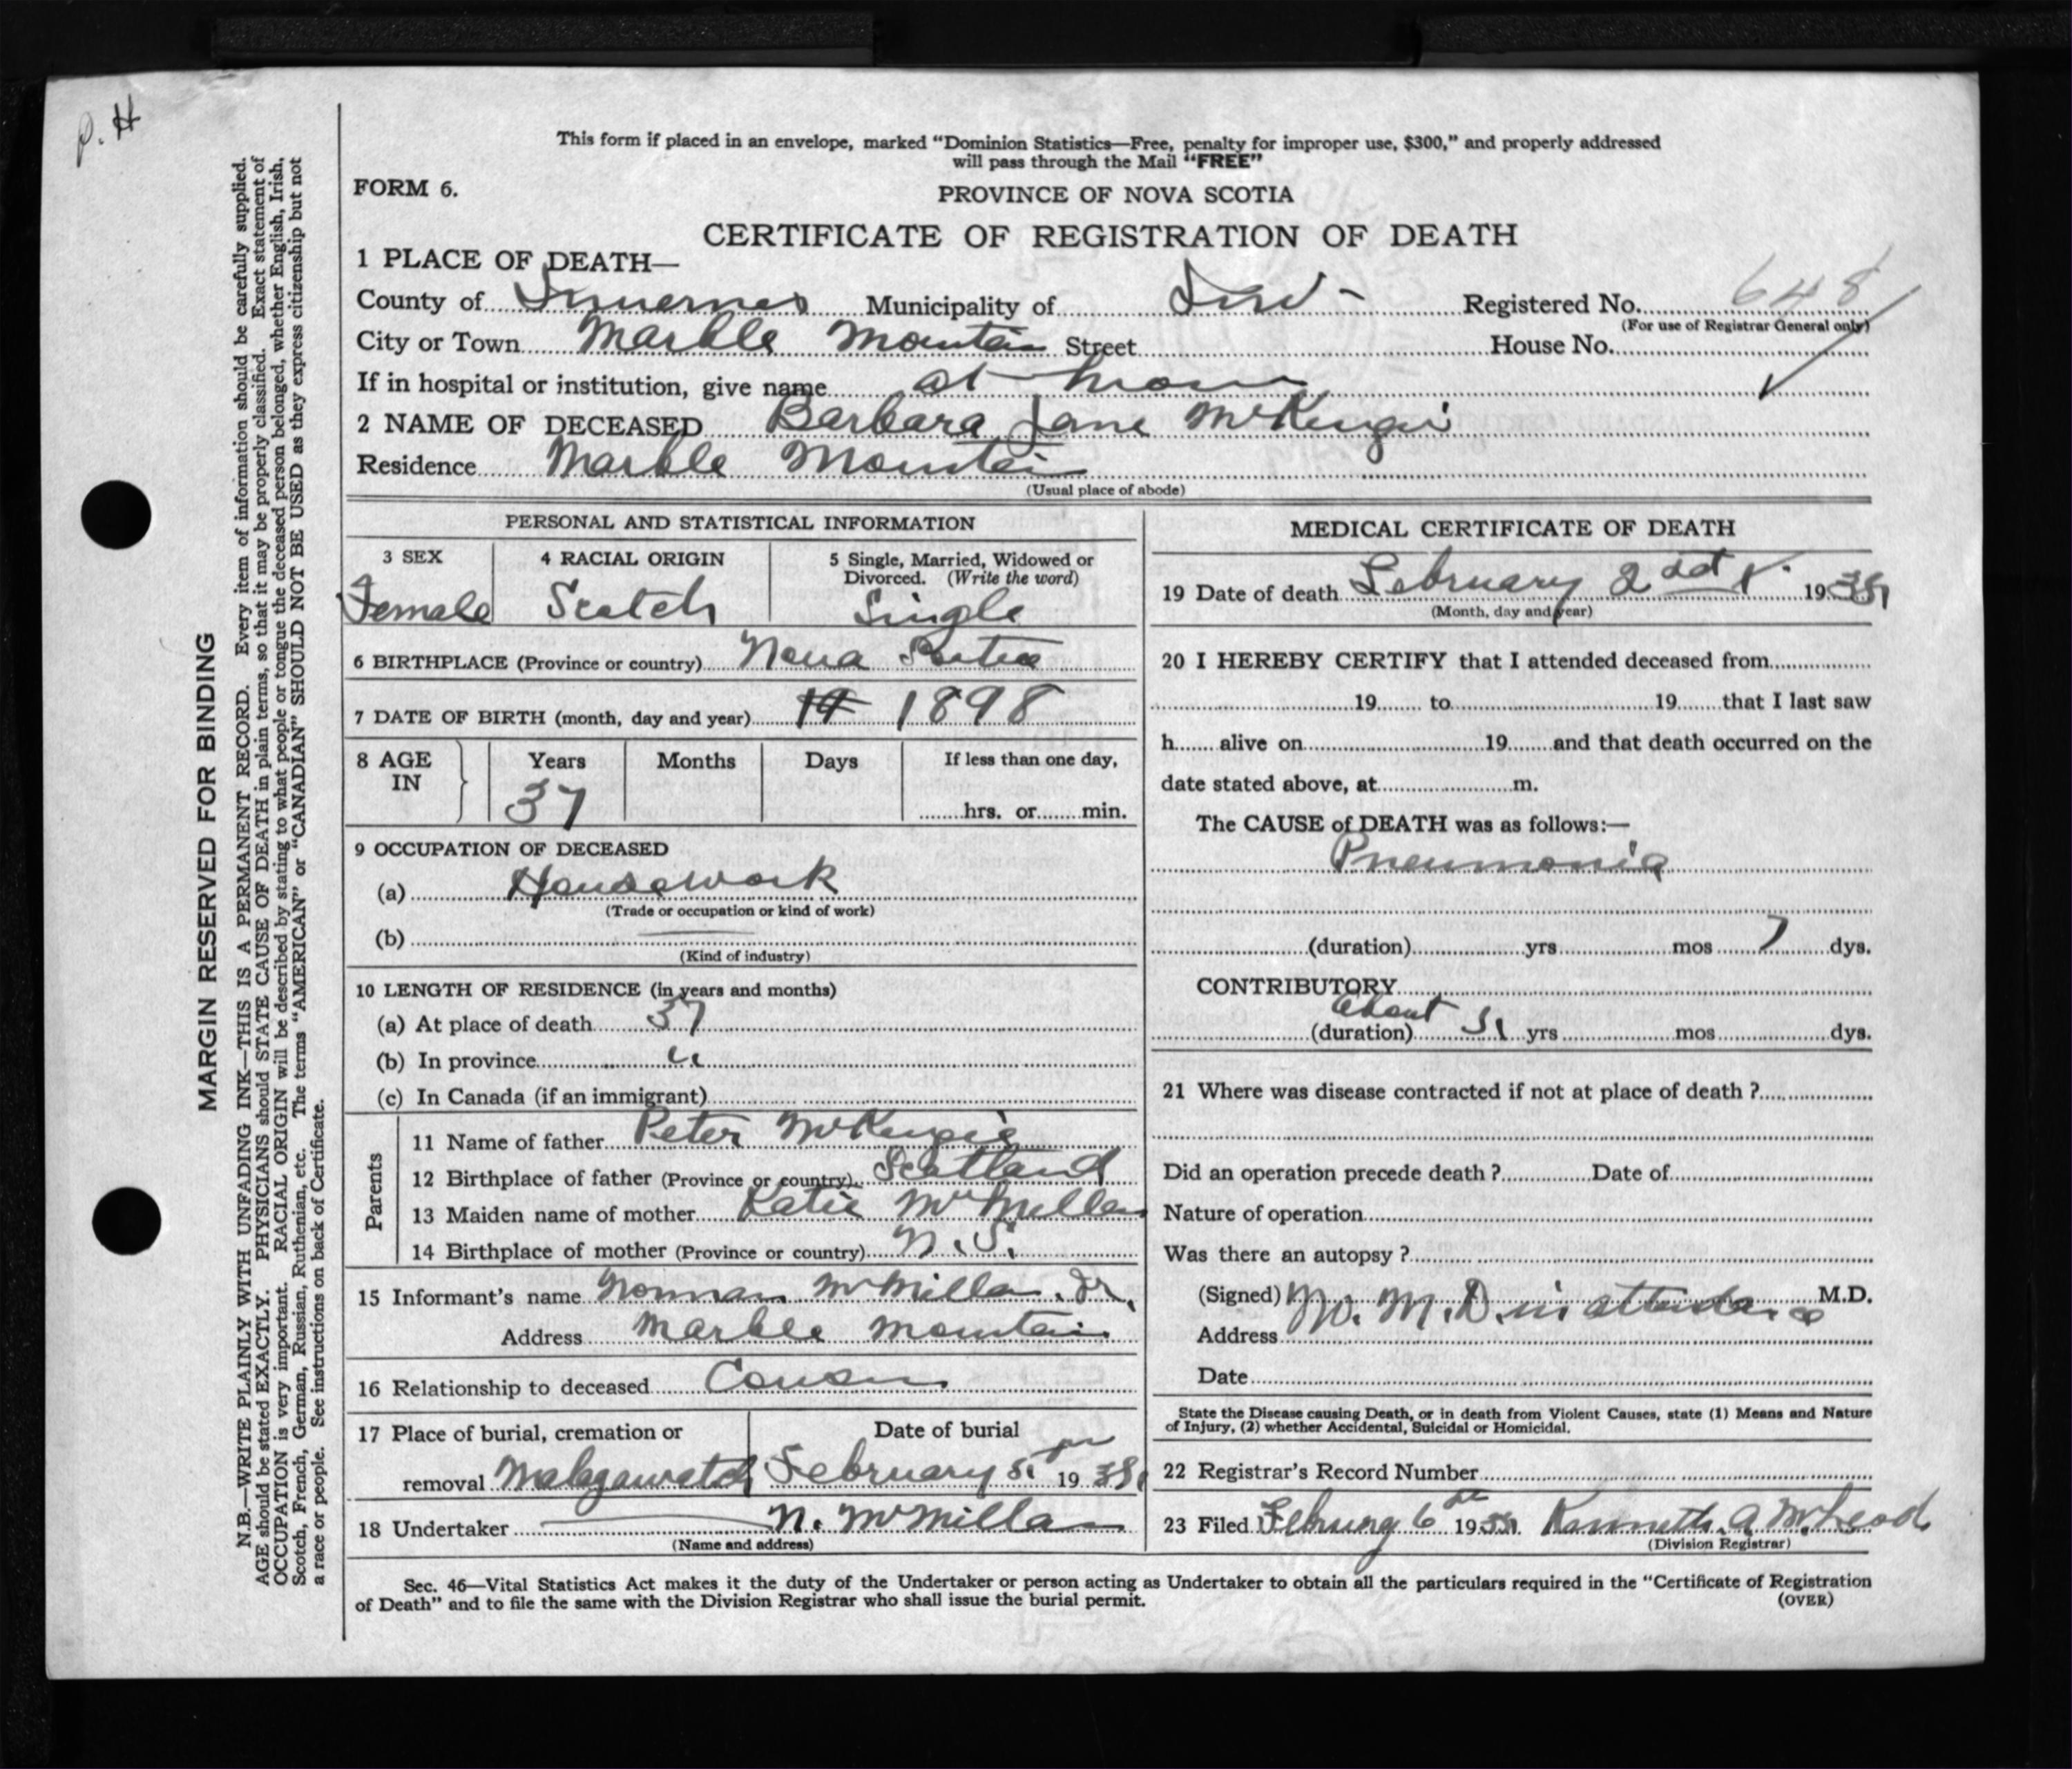 P. H
This form if placed in an envelope, marked “Dominion Statistics—Free, penalty for improper use, $300,” and properly addressed
will pass through the Mail “FREE”
FORM 6.
PROVINCE OF NOVA SCOTIA
CERTIFICATE OF REGISTRATION OF DEATH
1 PLACE OF DEATH—
County of Inverness Municipality of Inv- Registered No. 648
(For use of Registrar General only)
City or Town Marble Mountain Street House No.
If in hospital or institution, give name at home
2 NAME OF DECEASED Barbara Jane McKenzie
Residence Marble Mountain
(Usual place of abode)
PERSONAL AND STATISTICAL INFORMATION
3 SEX 4 RACIAL ORIGIN 5 Single, Married, Widowed or
Divorced. (Write the word)
Female Scotch Single
6 BIRTHPLACE (Province or country) Nova Scotia
7 DATE OF BIRTH (month, day and year) 19 1898
8 AGE IN Years Months Days If less than one day,
37 hrs. or min.
9 OCCUPATION OF DECEASED
(a) Housework
(Trade or occupation or kind of work)
(b)
(Kind of industry)
10 LENGTH OF RESIDENCE (in years and months)
(a) At place of death 37
(b) In province "
(c) In Canada (if an immigrant)
Parents
11 Name of father Peter McKenzie
12 Birthplace of father (Province or country) Scotland
13 Maiden name of mother Katie McMillan
14 Birthplace of mother (Province or country) N.S.
15 Informant's name Norman McMillan. Sr.
Address Marble Mountain
16 Relationship to deceased Cousin
17 Place of burial, cremation or Date of burial
removal Malagawatch February 5th 19
18 Undertaker N. McMillan
(Name and address)
MEDICAL CERTIFICATE OF DEATH
19 Date of death February 2 19
(Month, day and year)
20 I HEREBY CERTIFY that I attended deceased from
19 to 19 that I last saw
h alive on 19 and that death occurred on the
date stated above, at m.
The CAUSE of DEATH was as follows:—
Pneumonia
(duration) yrs mos 7 dys.
CONTRIBUTORY
about
(duration) yrs mos dys.
21 Where was disease contracted if not at place of death ?
Did an operation precede death ? Date of
Nature of operation
Was there an autopsy ?
(Signed) No. M.D. in attendance M.D.
Address
Date
State the Disease causing Death, or in death from Violent Causes, state (1) Means and Nature
of Injury, (2) whether Accidental, Suicidal or Homicidal.
22 Registrar's Record Number
23 Filed February 6th 19 Kenneth A McLeod
(Division Registrar)
Sec. 46—Vital Statistics Act makes it the duty of the Undertaker or person acting as Undertaker to obtain all the particulars required in the “Certificate of Registration
of Death” and to file the same with the Division Registrar who shall issue the burial permit.
(OVER)
MARGIN RESERVED FOR BINDING
N.B.—WRITE PLAINLY WITH UNFADING INK—THIS IS A PERMANENT RECORD. Every item of information should be carefully supplied.
AGE should be stated EXACTLY. PHYSICIANS should STATE CAUSE OF DEATH in plain terms, so that it may be properly classified. Exact statement of
OCCUPATION is very important. RACIAL ORIGIN will be described by stating to what people or tongue the deceased person belonged, whether English, Irish,
Scotch, French, German, Russian, Ruthenian, etc. The terms “AMERICAN” or “CANADIAN” SHOULD NOT BE USED as they express citizenship but not
a race or people. See instructions on back of Certificate.